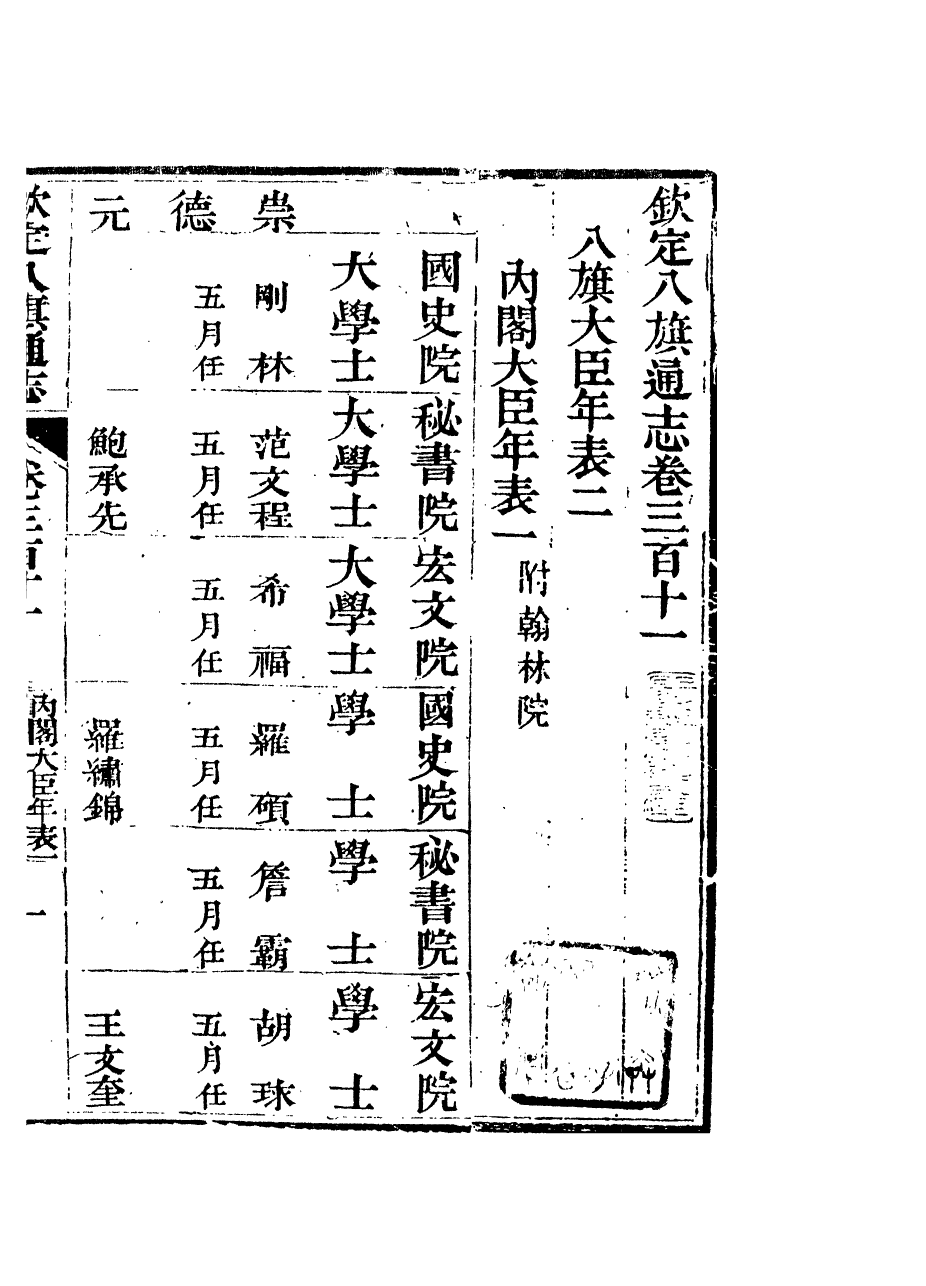 欽定八旗通志卷三百十一
八旗大臣年表二
內閣大臣年表一 附翰林院
國史院 秘書院 宏文院 國史院 秘書院 宏文院
大學士 大學士 大學士 學士 學士 學士
崇 剛林 范文程 希福 羅碩 詹霸 胡球
德 五月任 五月任 五月任 五月任 五月任 五月任
元 鮑承先 羅繡錦 王文奎
欽定八旗通志 卷三百十一 內閣大臣年表一 一